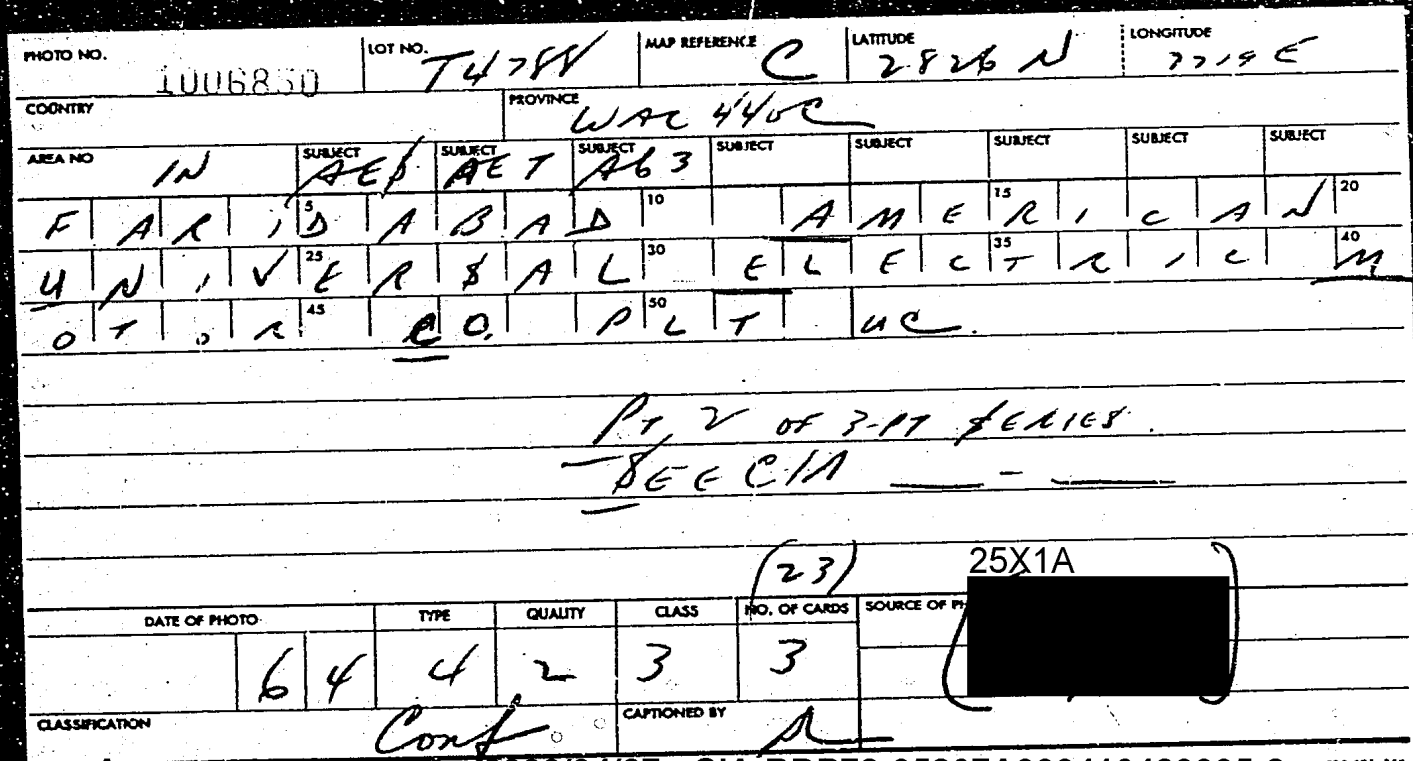 PHOTO NO. 1006830 LOT NO. T4788 MAP REFERENCE C LATITUDE 2826 N LONGITUDE 7719 E
COUNTRY PROVINCE WAC 440C
AREA NO IN SUBJECT AE8 SUBJECT AET SUBJECT AG3 SUBJECT SUBJECT SUBJECT SUBJECT SUBJECT
FARI 5 DABAD 10 AMERICAN 15 20
UNIV 25 ERSAL 30 ELECTRIC 35 40 M
OTOR 45 CO. PLT 50 UC.
PT 2 OF 3-PT SERIES.
SEE CIA ___ - ___
(23) 25X1A
DATE OF PHOTO TYPE QUALITY CLASS NO. OF CARDS SOURCE OF
6 4 4 2 3 3
CLASSIFICATION Conf CAPTIONED BY